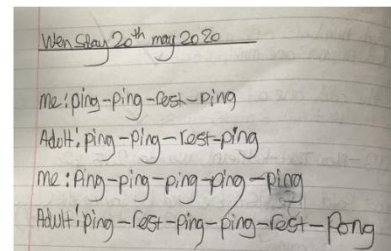 Wensday 20th may 2020
me: ping-ping-rest-ping
Adult: ping-ping-rest-ping
me: Ping-ping-ping-ping-ping
Adult: ping-rest-ping-ping-rest-Pong